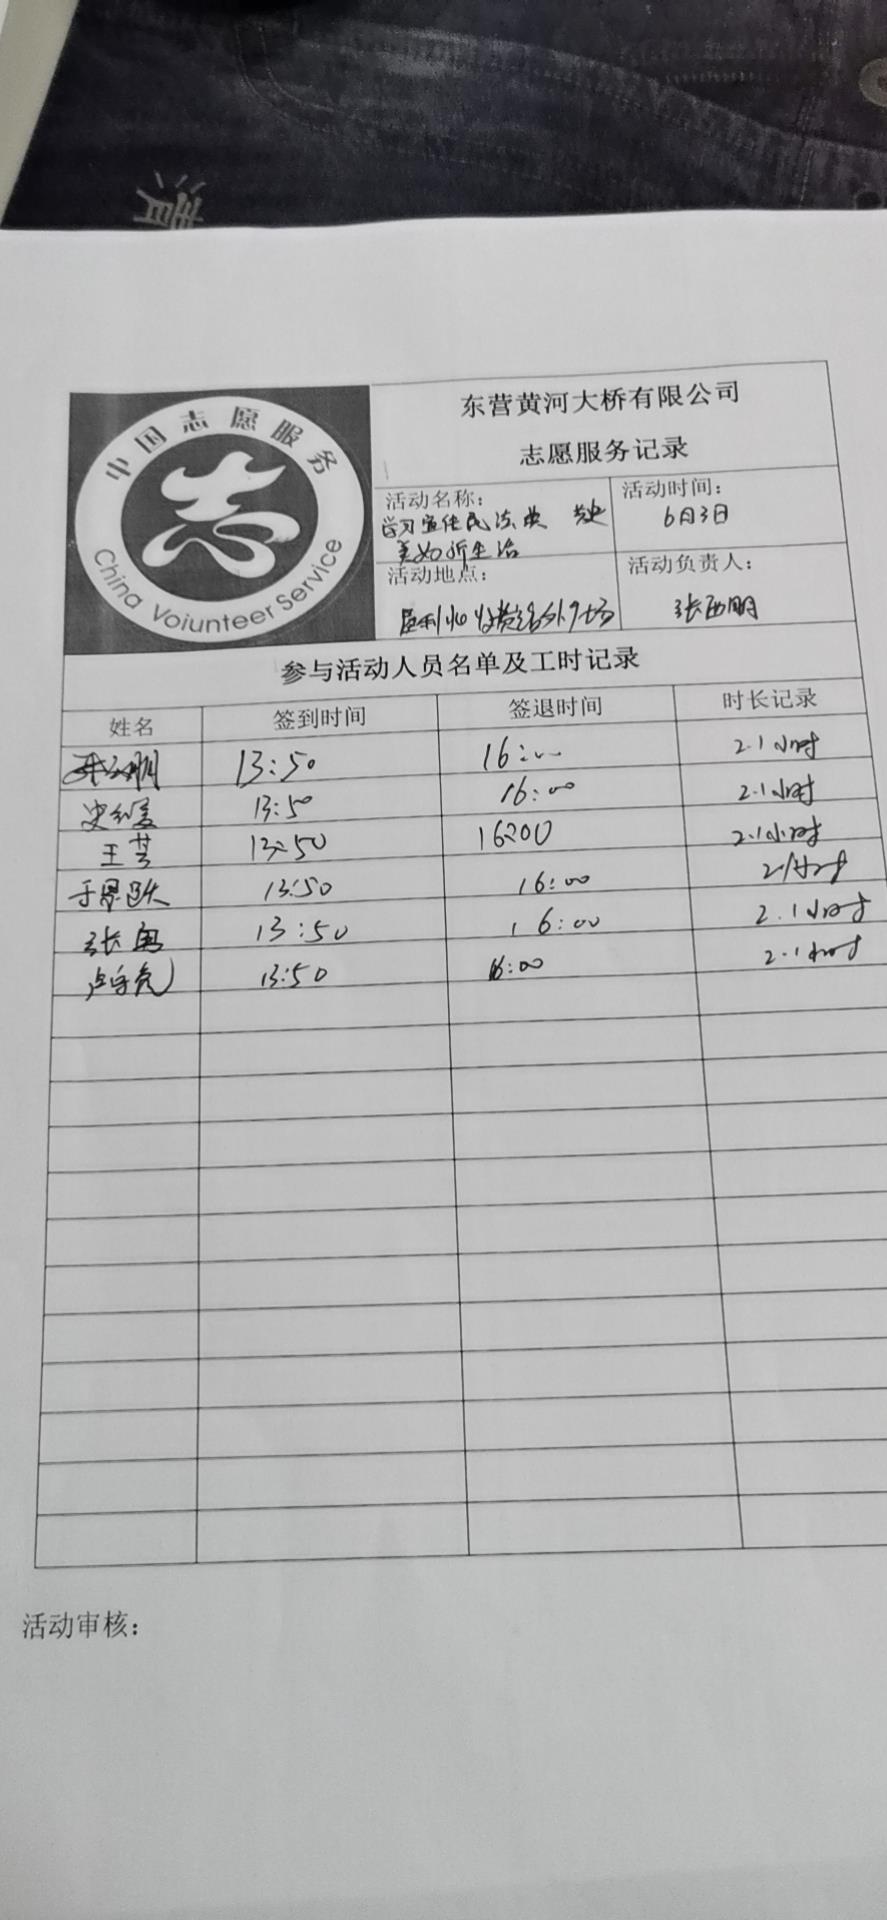 中国志愿服务
China Voiunteer Service
东营黄河大桥有限公司
志愿服务记录
活动名称：
学习宣传民法典 共建
美好新生活
活动时间：
6月3日
活动地点：
胜利收费站外广场
活动负责人：
张西明
参与活动人员名单及工时记录
姓名 签到时间 签退时间 时长记录
13:50 16:00 2.1小时
13:50 16:00 2.1小时
王芸 13:50 16:00 2.1小时
于恩跃 13:50 16:00 2.1小时
张勇 13:50 16:00 2.1小时
卢宗亮 13:50 16:00 2.1小时
活动审核：